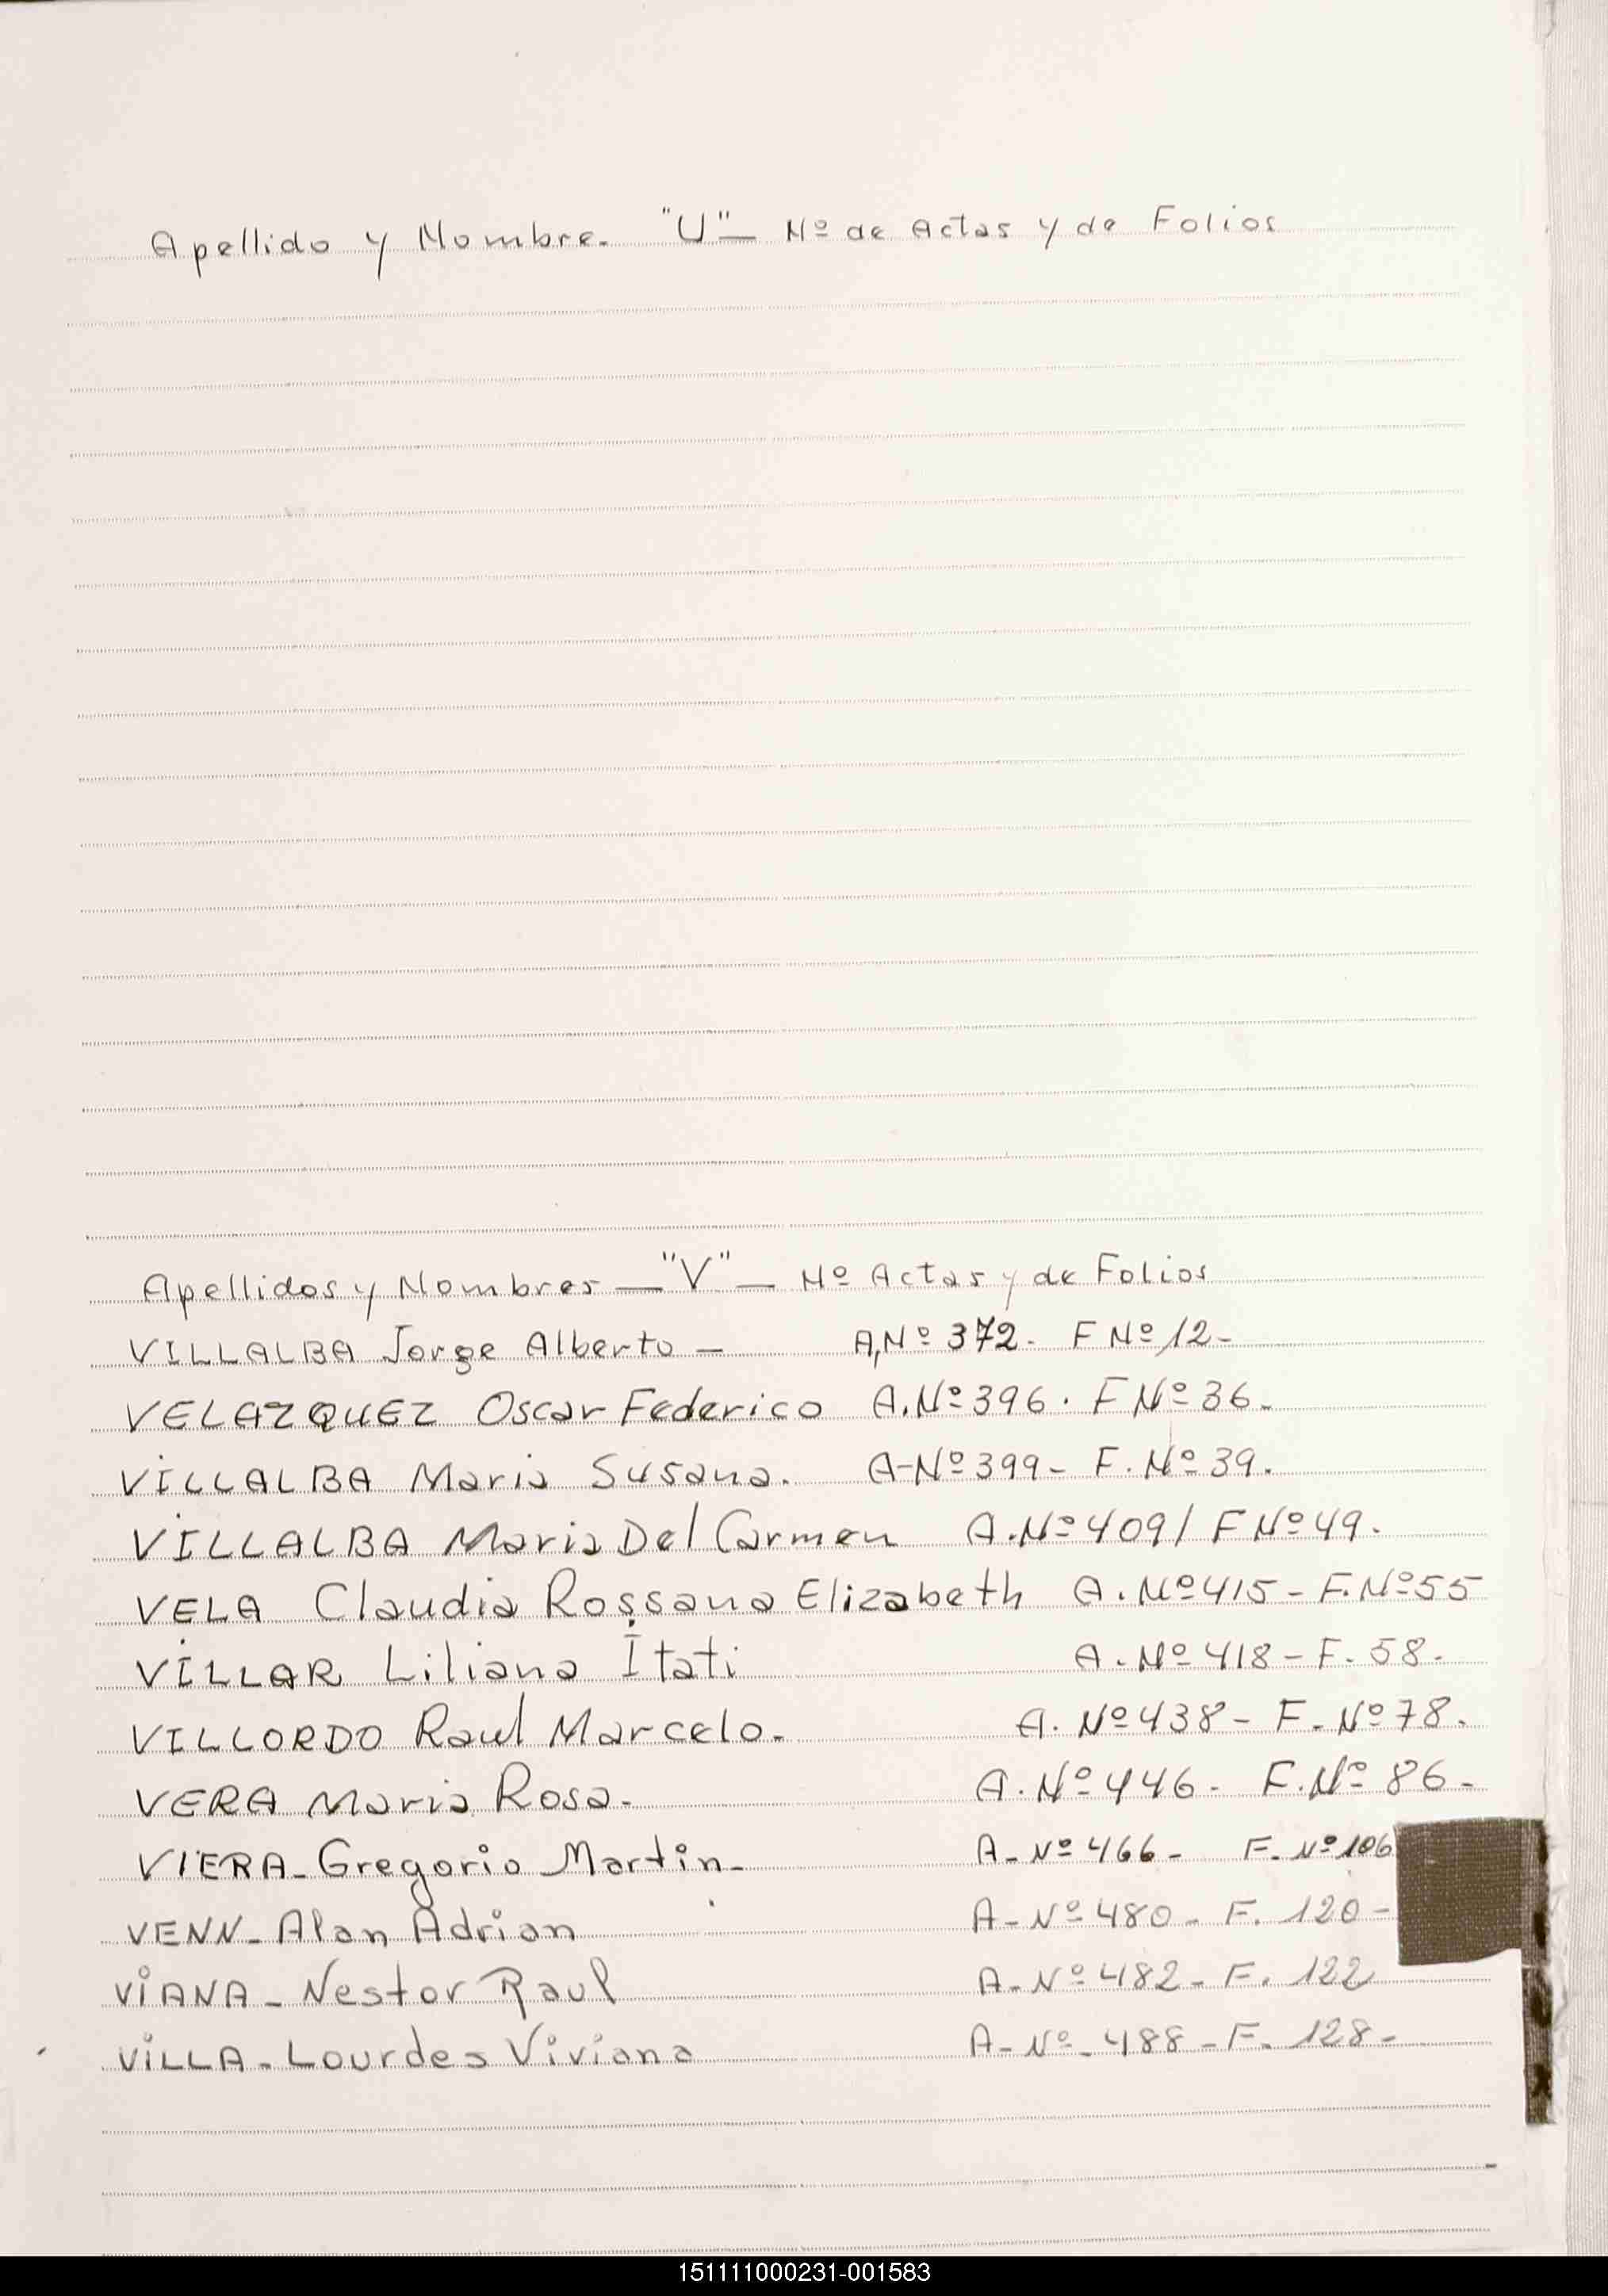 Apellido y Nombre. "U" — Nº de Actas y de Folios
Apellidos y Nombres — "V" — Nº Actas y de Folios
VILLALBA Jorge Alberto — A,Nº 372- F Nº 12-
VELAZQUEZ Oscar Federico A.Nº 396. F Nº 36-
VILLALBA Maria Susana. A-Nº 399- F. Nº 39.
VILLALBA Maria Del Carmen A.Nº 409/ F Nº 49.
VELA Claudia Rossana Elizabeth A. Nº 415- F.Nº 55
VILLAR Liliana Itati A. Nº 418- F. 58.
VILLORDO Raul Marcelo. A. Nº 438- F. Nº 78.
VERA Maria Rosa. A. Nº 446- F.Nº 86-
VIERA- Gregorio Martin- A- Nº 466- F. Nº 106
VENN- Alan Adrian A- Nº 480- F. 120-
VIANA- Nestor Raul A- Nº 482- F. 122
VILLA- Lourdes Viviana A- Nº- 488- F- 128-
151111000231-001583